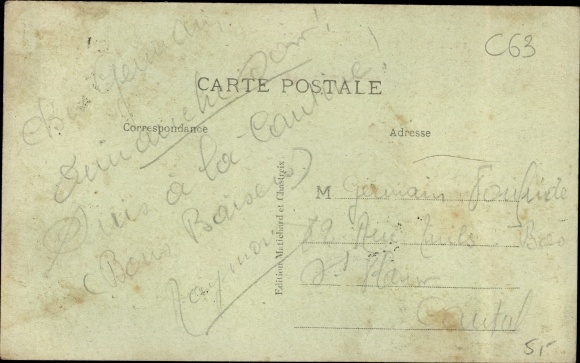 C63
CARTE POSTALE
Correspondance
Adresse
Ch. Germain,
Dimanche soir!
Suis à la Cantine!
(Bons Baisers)
Raymond
Edition Matichard et Chastreix
M Germain
52 Rue
St Flour
Cantal
5F